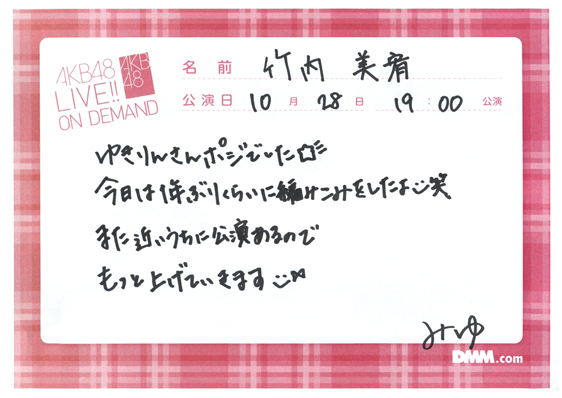 AKB48
LIVE!!
ON DEMAND
AKB
48
名前 竹内 美宥
公演日 10月 28日 19:00 公演
ゆきりんさんポジでした
今日は1年ぶりくらいに編みこみをしたよ笑
また近いうちに公演あるので
もっと上げていきます
みゆ
DMM.com